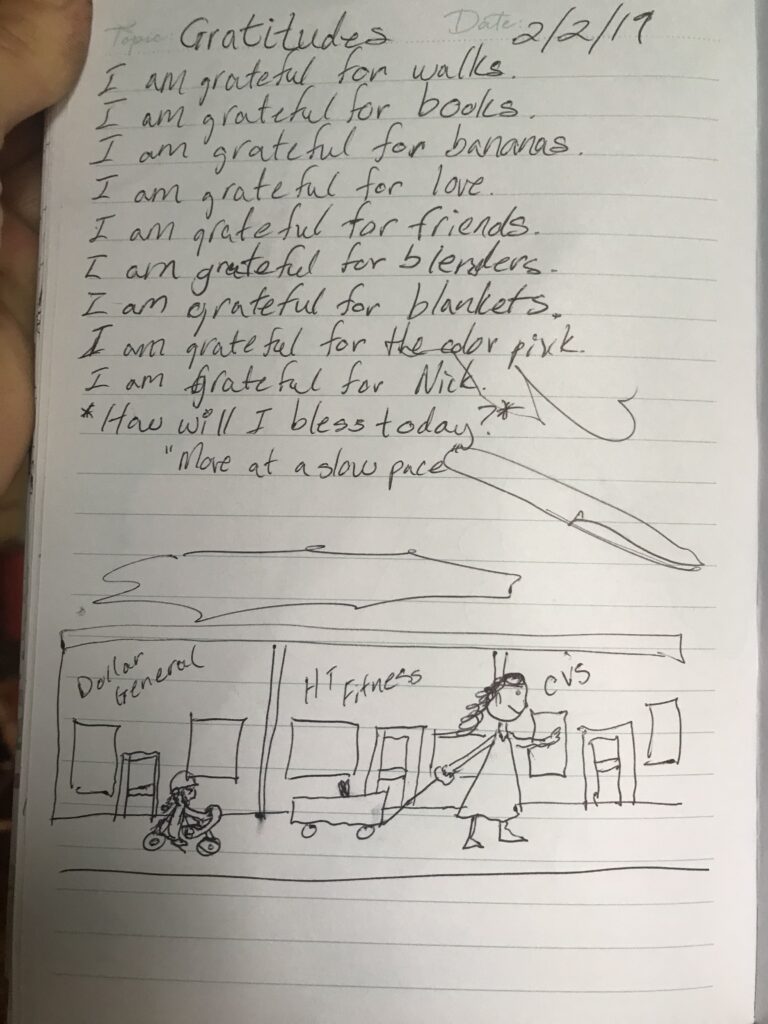 Topic: Gratitudes Date: 2/2/19
I am grateful for walks.
I am grateful for books.
I am grateful for bananas.
I am grateful for love.
I am grateful for friends.
I am grateful for blenders.
I am grateful for blankets.
I am grateful for the color pink.
I am grateful for Nick.
*How will I bless today?*
"Move at a slow pace
Dollar General
HT Fitness
CVS